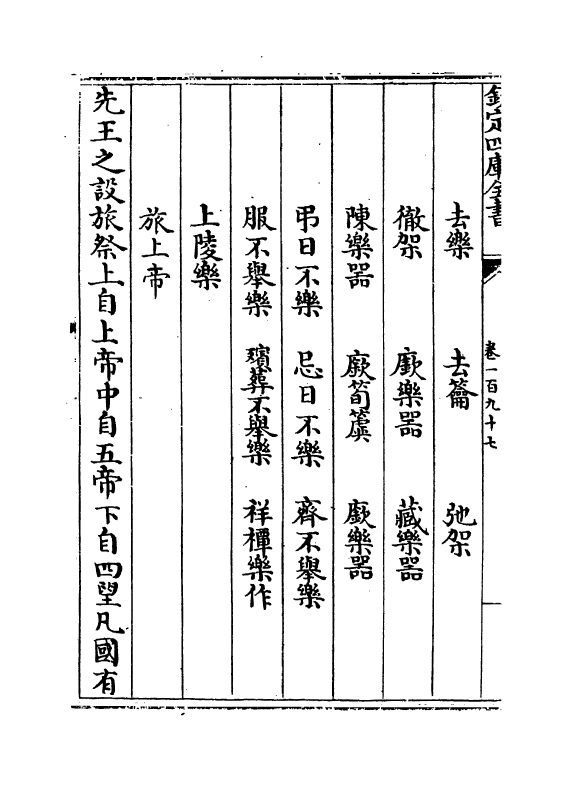 欽定四庫全書
卷一百九十七
去樂 去籥 弛架
徹架 廞樂器 藏樂器
陳樂器 廞筍簴 廞樂器
弔日不樂 忌日不樂 齊不舉樂
服不舉樂 殯葬不舉樂 祥禫樂作
上陵樂
旅上帝
先王之設旅祭上自上帝中自五帝下自四望凡國有